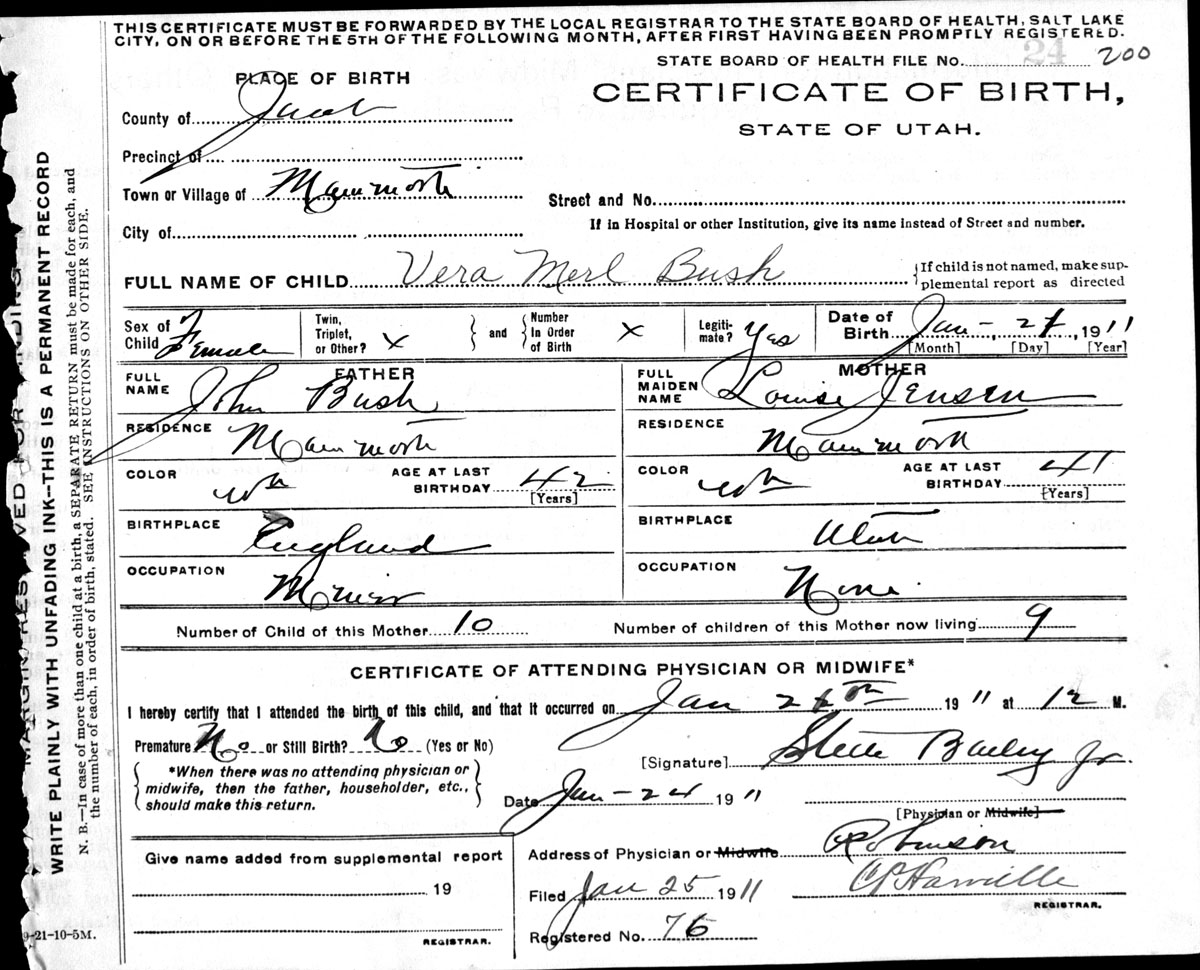 THIS CERTIFICATE MUST BE FORWARDED BY THE LOCAL REGISTRAR TO THE STATE BOARD OF HEALTH, SALT LAKE
CITY, ON OR BEFORE THE 5TH OF THE FOLLOWING MONTH, AFTER FIRST HAVING BEEN PROMPTLY REGISTERED.
STATE BOARD OF HEALTH FILE No. 24 200
PLACE OF BIRTH
CERTIFICATE OF BIRTH,
STATE OF UTAH.
County of Juab
Precinct of
Town or Village of Mammoth
Street and No.
If in Hospital or other Institution, give its name instead of Street and number.
City of
FULL NAME OF CHILD Vera Merl Bush
{If child is not named, make sup-
plemental report as directed
Sex of Child Female
Twin, Triplet, or Other? X } and { Number In Order of Birth X
Legiti-mate? Yes
Date of Birth Jan - 24, 1911
[Month] [Day] [Year]
FATHER
FULL NAME John Bush
RESIDENCE Mammoth
COLOR Wh AGE AT LAST BIRTHDAY 42
[Years]
BIRTHPLACE England
OCCUPATION Miner
MOTHER
FULL MAIDEN NAME Louise Jensen
RESIDENCE Mammoth
COLOR Wh AGE AT LAST BIRTHDAY 41
[Years]
BIRTHPLACE Utah
OCCUPATION None
Number of Child of this Mother 10
Number of children of this Mother now living 9
CERTIFICATE OF ATTENDING PHYSICIAN OR MIDWIFE*
I hereby certify that I attended the birth of this child, and that it occurred on Jan 24th 1911 at 12 M.
Premature No or Still Birth? No (Yes or No)
[Signature] Steele Bailey Jr.
{ *When there was no attending physician or
midwife, then the father, householder, etc.,
should make this return. }
Date Jan - 24 1911
[Physician or Midwife]
Give name added from supplemental report
19
REGISTRAR.
Address of Physician or Midwife Robinson
Filed Jan 25 1911
REGISTRAR.
Registered No. 76
WRITE PLAINLY WITH UNFADING INK--THIS IS A PERMANENT RECORD
N. B.—In case of more than one child at a birth, a SEPARATE RETURN must be made for each, and
the number of each, in order of birth, stated. SEE INSTRUCTIONS ON OTHER SIDE.
9-21-10-5M.